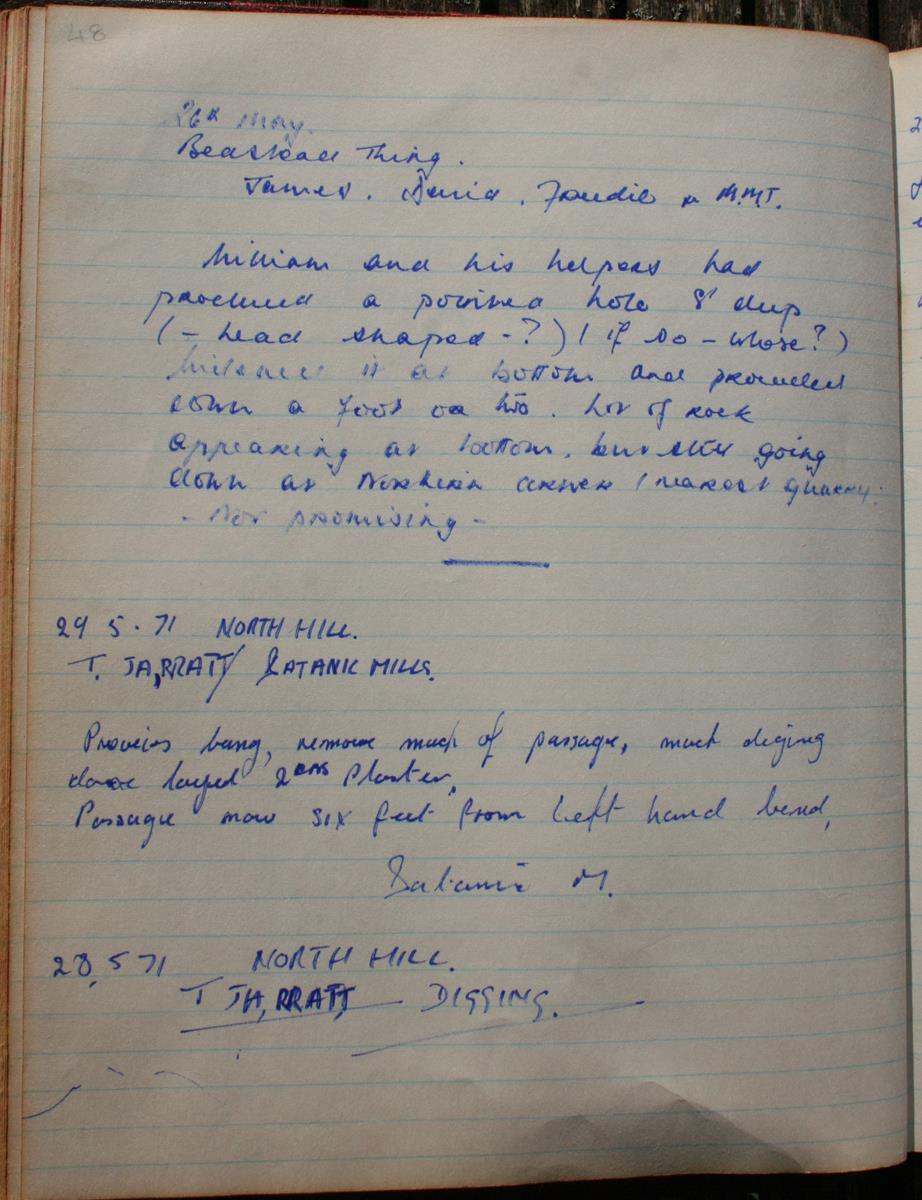 48
26th May.
Beastoad Thing.
James, David, & M.M.T.
William and his helpers had
produced a pointed hole 8' deep
(- head shaped - ?) ( if so - whose?)
is at bottom and proceeded
down a foot or two. Lot of rock
appearing at bottom, but still going
down at Northern corner (nearest quarry.
- Not promising -
29 5. 71 NORTH HILL.
T. JARRATT/ SATANIC MILLS.
Previos bang, remove much of passage, much diging
done layed 2 Plaster,
Passage now six feet from left hand bend,
Satanic M.
28, 5 71 NORTH HILL.
T JARRATT, DIGGING.